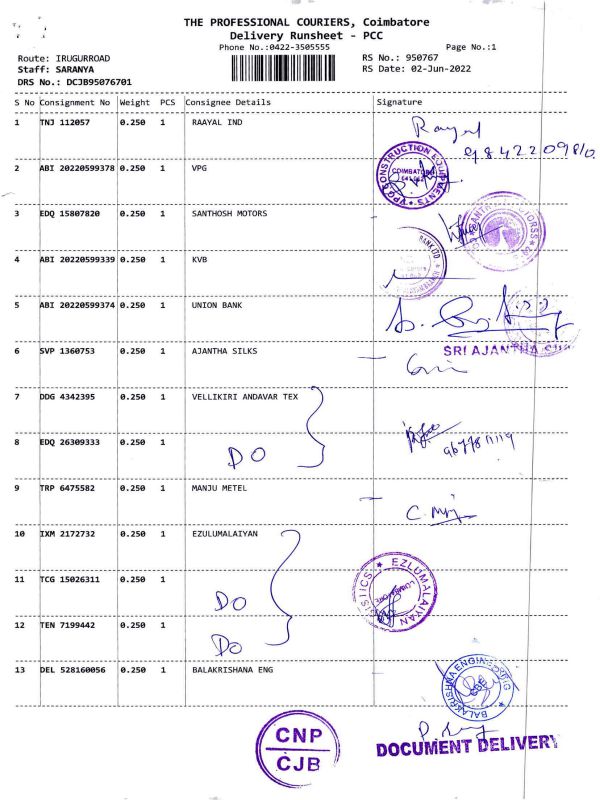 THE PROFESSIONAL COURIERS, Coimbatore
Delivery Runsheet - PCC
Phone No.:0422-3505555
Page No.:1
Route: IRUGURROAD
RS No.: 950767
Staff: SARANYA
RS Date: 02-Jun-2022
DRS No.: DCJB95076701
S No Consignment No Weight PCS Consignee Details Signature
1 TNJ 112057 0.250 1 RAAYAL IND
2 ABI 20220599378 0.250 1 VPG
VPG CONSTRUCTION EQUIPMENTS
COIMBATORE
3 EDQ 15807820 0.250 1 SANTHOSH MOTORS
4 ABI 20220599339 0.250 1 KVB
BANK LTD
5 ABI 20220599374 0.250 1 UNION BANK
6 SVP 1360753 0.250 1 AJANTHA SILKS
SRI AJANTHA
7 DDG 4342395 0.250 1 VELLIKIRI ANDAVAR TEX
8 EDQ 26309333 0.250 1
DO
9 TRP 6475582 0.250 1 MANJU METEL
10 IXM 2172732 0.250 1 EZULUMALAIYAN
EZLUMALAIYAN
11 TCG 15026311 0.250 1
DO
12 TEN 7199442 0.250 1
DO
13 DEL 528160056 0.250 1 BALAKRISHANA ENG
BALAKRISHNA ENGINEERING
CNP
CJB
DOCUMENT DELIVERY